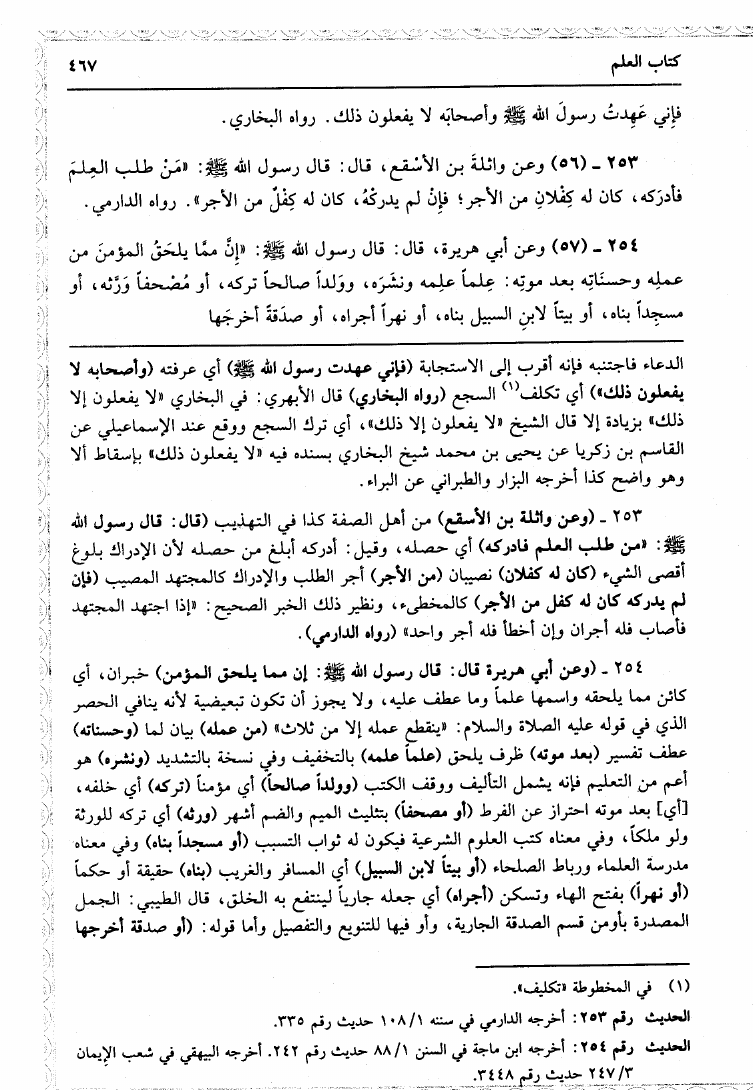 كتاب العلم ٤٦٧
فإِني عَهِدتُ رسولَ الله ﷺ وأصحابَه لا يفعلون ذلك. رواه البخاري.
٢٥٣ ـ (٥٦) وعن واثلةَ بن الأسْقع، قال: قال رسول الله ﷺ: «مَنْ طلب العِلمَ
فأدرَكه، كان له كِفْلانِ من الأجر؛ فإِنْ لم يدركْهُ، كان له كِفْلٌ من الأجر». رواه الدارمي.
٢٥٤ ـ (٥٧) وعن أبي هريرة، قال: قال رسول الله ﷺ: «إِنَّ ممَّا يلحَقُ المؤمنَ من
عملِه وحسنَاتِه بعد موتِه: عِلماً علِمه ونشَرَه، وولَداً صالحاً تركه، أو مُصْحفاً وَرَّثه، أو
مسجِداً بناه، أو بيتاً لابنِ السبيل بناه، أو نهراً أجراه، أو صدَقةً أخرجَها
الدعاء فاجتنبه فإنه أقرب إلى الاستجابة (فإني عهدت رسول الله ﷺ) أي عرفته (وأصحابه لا
يفعلون ذلك») أي تكلف(١) السجع (رواه البخاري) قال الأبهري: في البخاري «لا يفعلون إلا
ذلك» بزيادة إلا قال الشيخ «لا يفعلون إلا ذلك»، أي ترك السجع ووقع عند الإسماعيلي عن
القاسم بن زكريا عن يحيى بن محمد شيخ البخاري بسنده فيه «لا يفعلون ذلك» بإسقاط ألا
وهو واضح كذا أخرجه البزار والطبراني عن البراء.
٢٥٣ ـ (وعن واثلة بن الأسقع) من أهل الصفة كذا في التهذيب (قال: قال رسول الله
ﷺ: «من طلب العلم فادركه) أي حصله، وقيل: أدركه أبلغ من حصله لأن الإدراك بلوغ
أقصى الشيء (كان له كفلان) نصيبان (من الأجر) أجر الطلب والإدراك كالمجتهد المصيب (فإن
لم يدركه كان له كفل من الأجر) كالمخطىء، ونظير ذلك الخبر الصحيح: «إذا اجتهد المجتهد
فأصاب فله أجران وإن أخطأ فله أجر واحد» (رواه الدارمي).
٢٥٤ ـ (وعن أبي هريرة قال: قال رسول الله ﷺ: إن مما يلحق المؤمن) خبران، أي
كائن مما يلحقه واسمها علماً وما عطف عليه، ولا يجوز أن تكون تبعيضية لأنه ينافي الحصر
الذي في قوله عليه الصلاة والسلام: «ينقطع عمله إلا من ثلاث» (من عمله) بيان لما (وحسناته)
عطف تفسير (بعد موته) ظرف يلحق (علماً علمه) بالتخفيف وفي نسخة بالتشديد (ونشره) هو
أعم من التعليم فإنه يشمل التأليف ووقف الكتب (وولداً صالحاً) أي مؤمناً (تركه) أي خلفه،
[أي] بعد موته احتراز عن الفرط (أو مصحفاً) بتثليث الميم والضم أشهر (ورثه) أي تركه للورثة
ولو ملكاً، وفي معناه كتب العلوم الشرعية فيكون له ثواب التسبب (أو مسجداً بناه) وفي معناه
مدرسة العلماء ورباط الصلحاء (أو بيتاً لابن السبيل) أي المسافر والغريب (بناه) حقيقة أو حكماً
(أو نهراً) بفتح الهاء وتسكن (أجراه) أي جعله جارياً لينتفع به الخلق، قال الطيبي: الجمل
المصدرة بأومن قسم الصدقة الجارية، وأو فيها للتنويع والتفصيل وأما قوله: (أو صدقة أخرجها
(١) في المخطوطة «تكليف».
الحديث رقم ٢٥٣: أخرجه الدارمي في سننه ١٠٨/١ حديث رقم ٣٣٥.
الحديث رقم ٢٥٤: أخرجه ابن ماجة في السنن ٨٨/١ حديث رقم ٢٤٢. أخرجه البيهقي في شعب الإيمان
٢٤٧/٣ حديث رقم ٣٤٤٨.